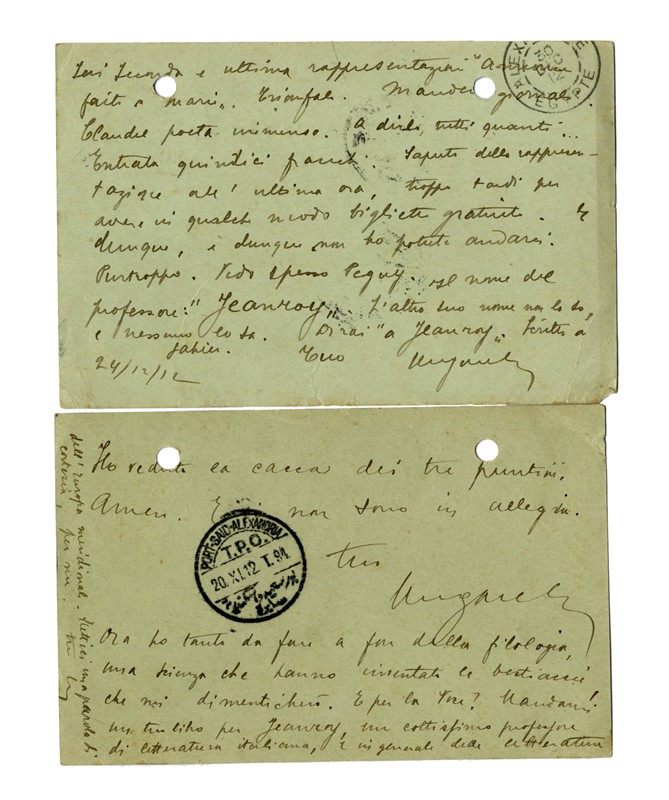 Ieri seconda e ultima rappresentazione "Annonce
faite à Marie". Trionfale. Mander giornal
Claudel poeta immenso. A dirlo, tutti quanti...
Entrata quindici franchi. Saputo della rappresen-
tazione all'ultima ora, troppo tardi per
avere in qualche modo biglietto gratuito. E
dunque, e dunque non ho potuto andarci.
Purtroppo. Vedo spesso Peguy. Il nome del
professore: "Jeanroy". L'altro suo nome non lo so,
e nessuno lo sa. Dirai "a Jeanroy". Scritto a
Jahier. Tuo
24/12/12 Ungaretti
ALEX
EGYPTE
Ho veduto la caccia dei tre puntini.
Amen. E non sono in allegria.
tuo
Ungaretti
PORT-SAID-ALEXANDRIA
T.P.O.
20.XI.12 T.94
Ora ho tanto da fare a far della filologia,
una scienza che hanno inventato le bestiacce
che noi dimenticherò. E per la Voce? Mandami
un tuo libro per Jeanroy, un coltissimo professore
di letteratura italiana, e in generale delle letterature
dell'Europa meridional. Mettici una parola di
cortesia, per me. tuo U